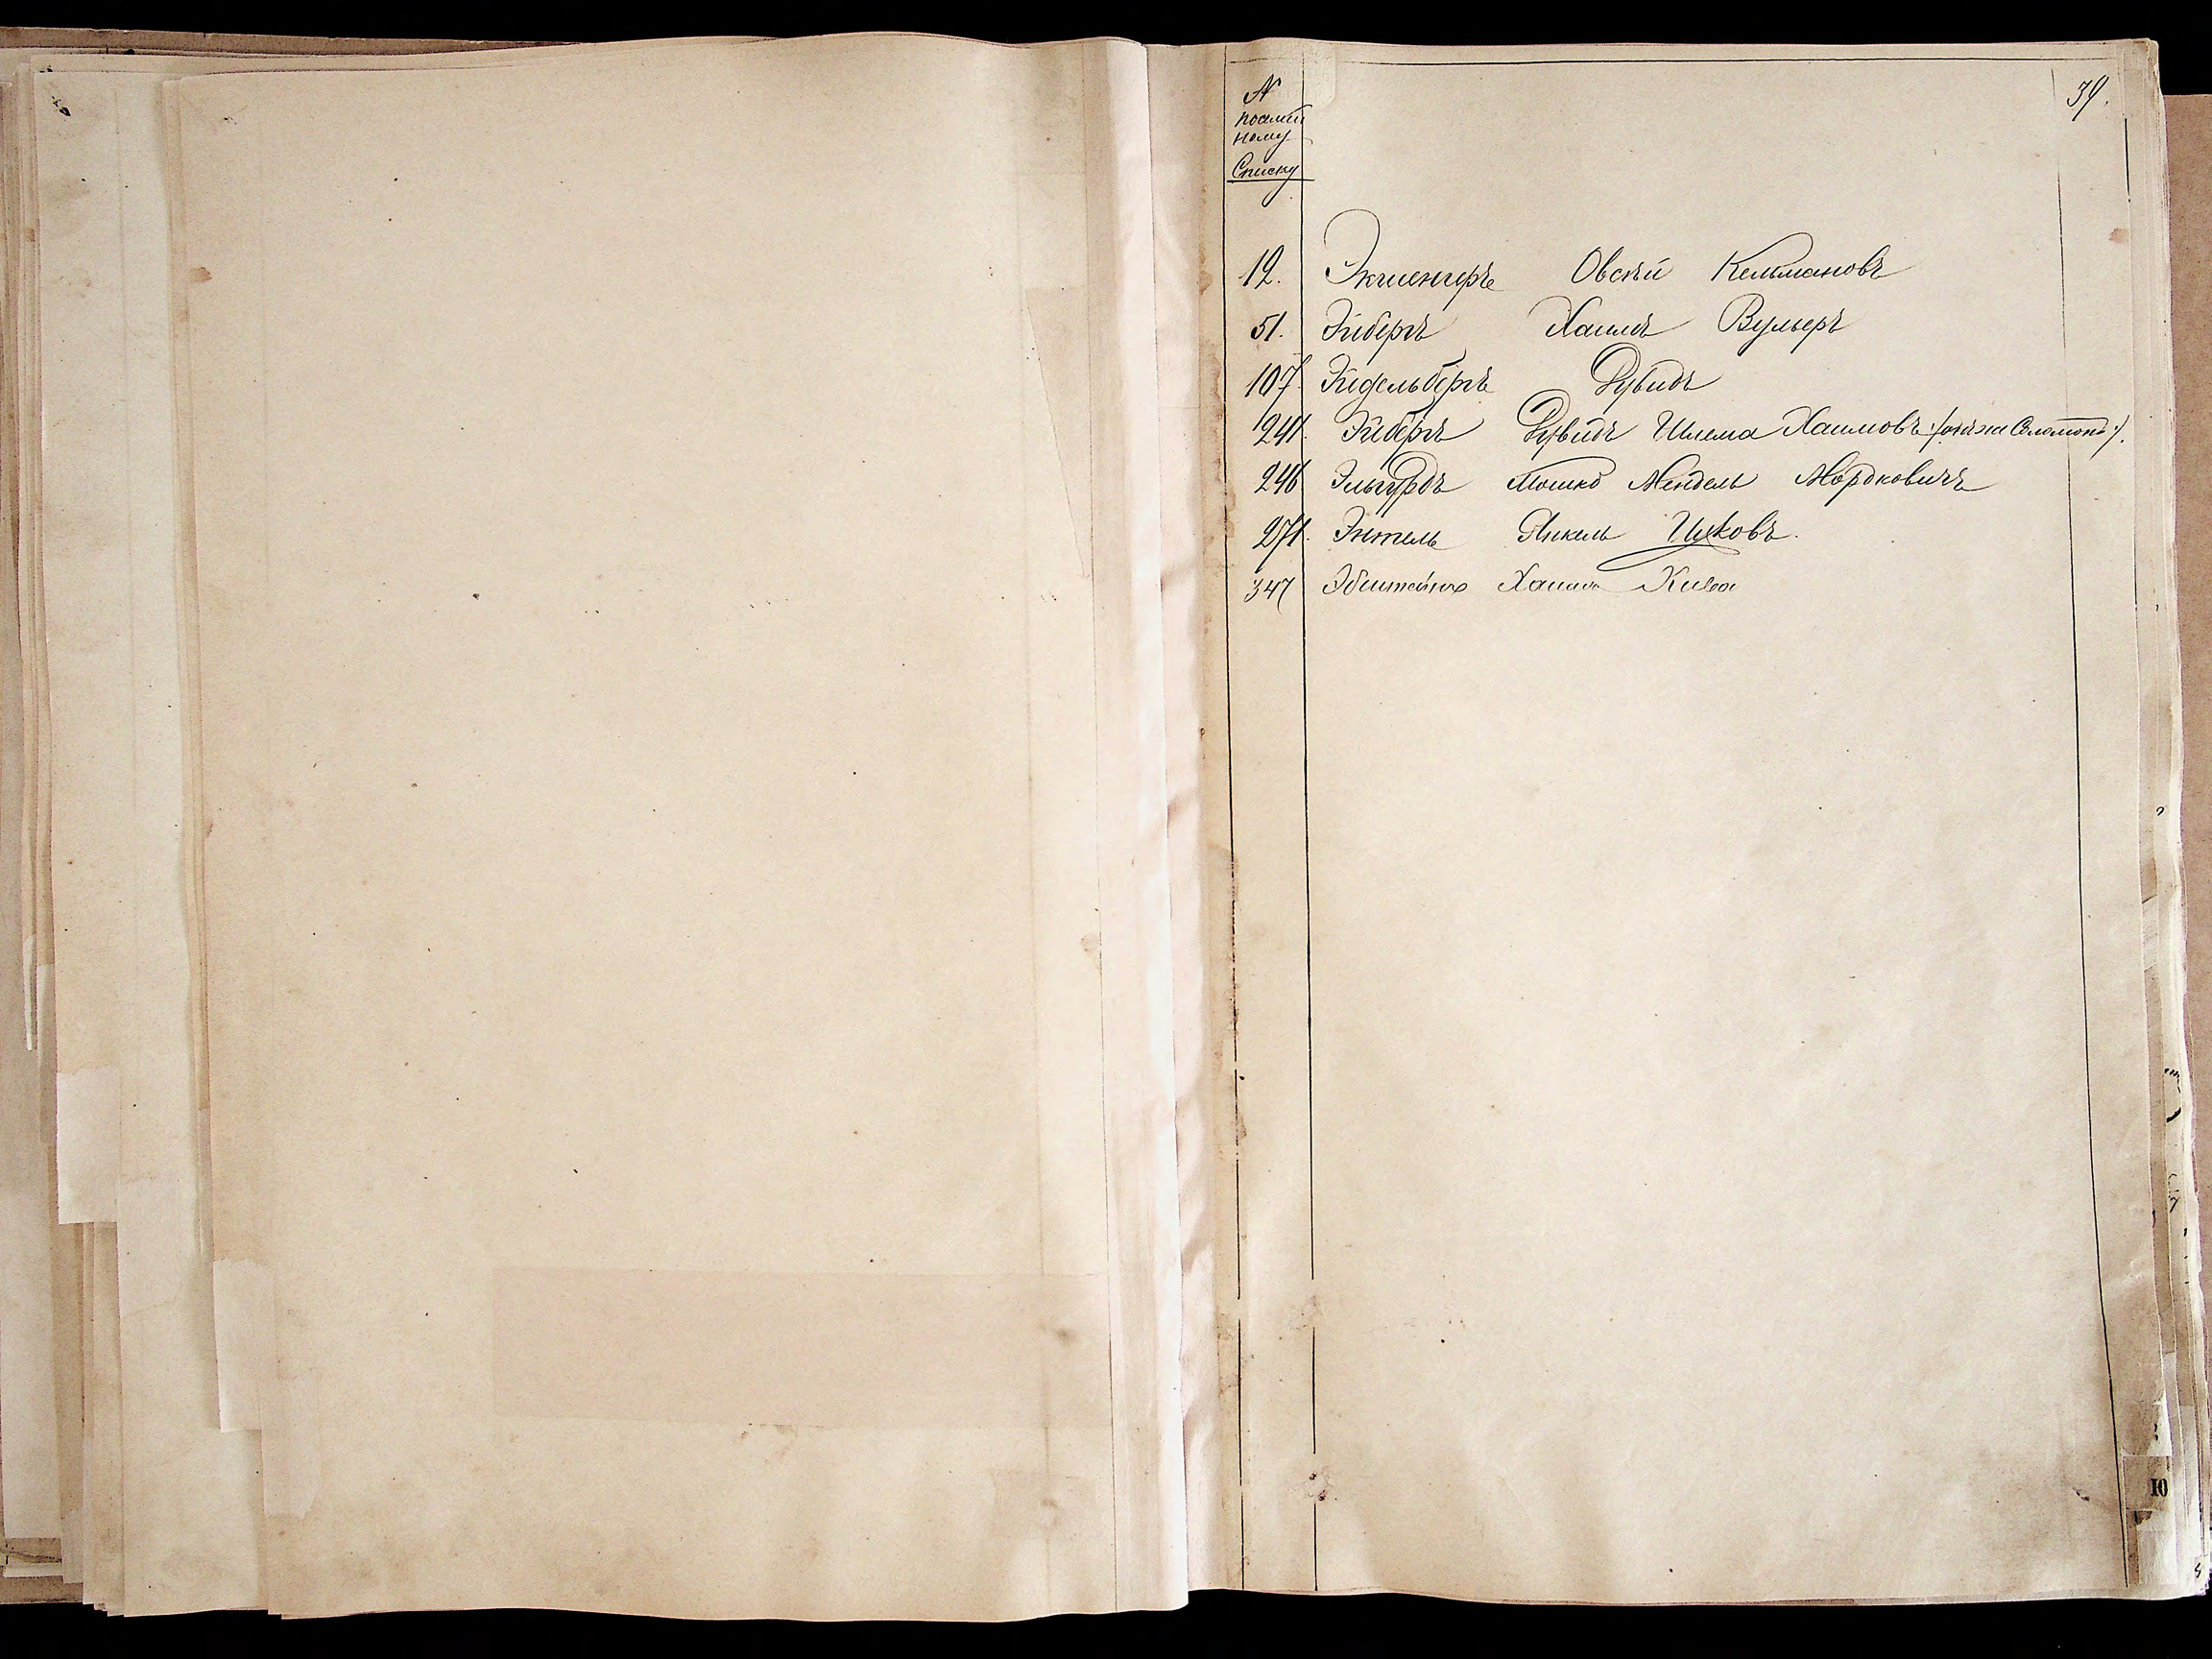 39.
№
посемей
ному
Списку
12. Овсѣй Кельмановъ
51. Эйберъ Хаимъ Вульеръ
107. Эйдельбергъ Дувидъ
241. Эйберъ Дувидъ Шлема Хаимовъ /: онъ же Соломонъ :/.
246 Эльгурдъ Мошко Мендель Мордковичъ
271. Энтель Янкель Ицковъ.
347 Эбштейнъ Хаимъ Кива
Ю